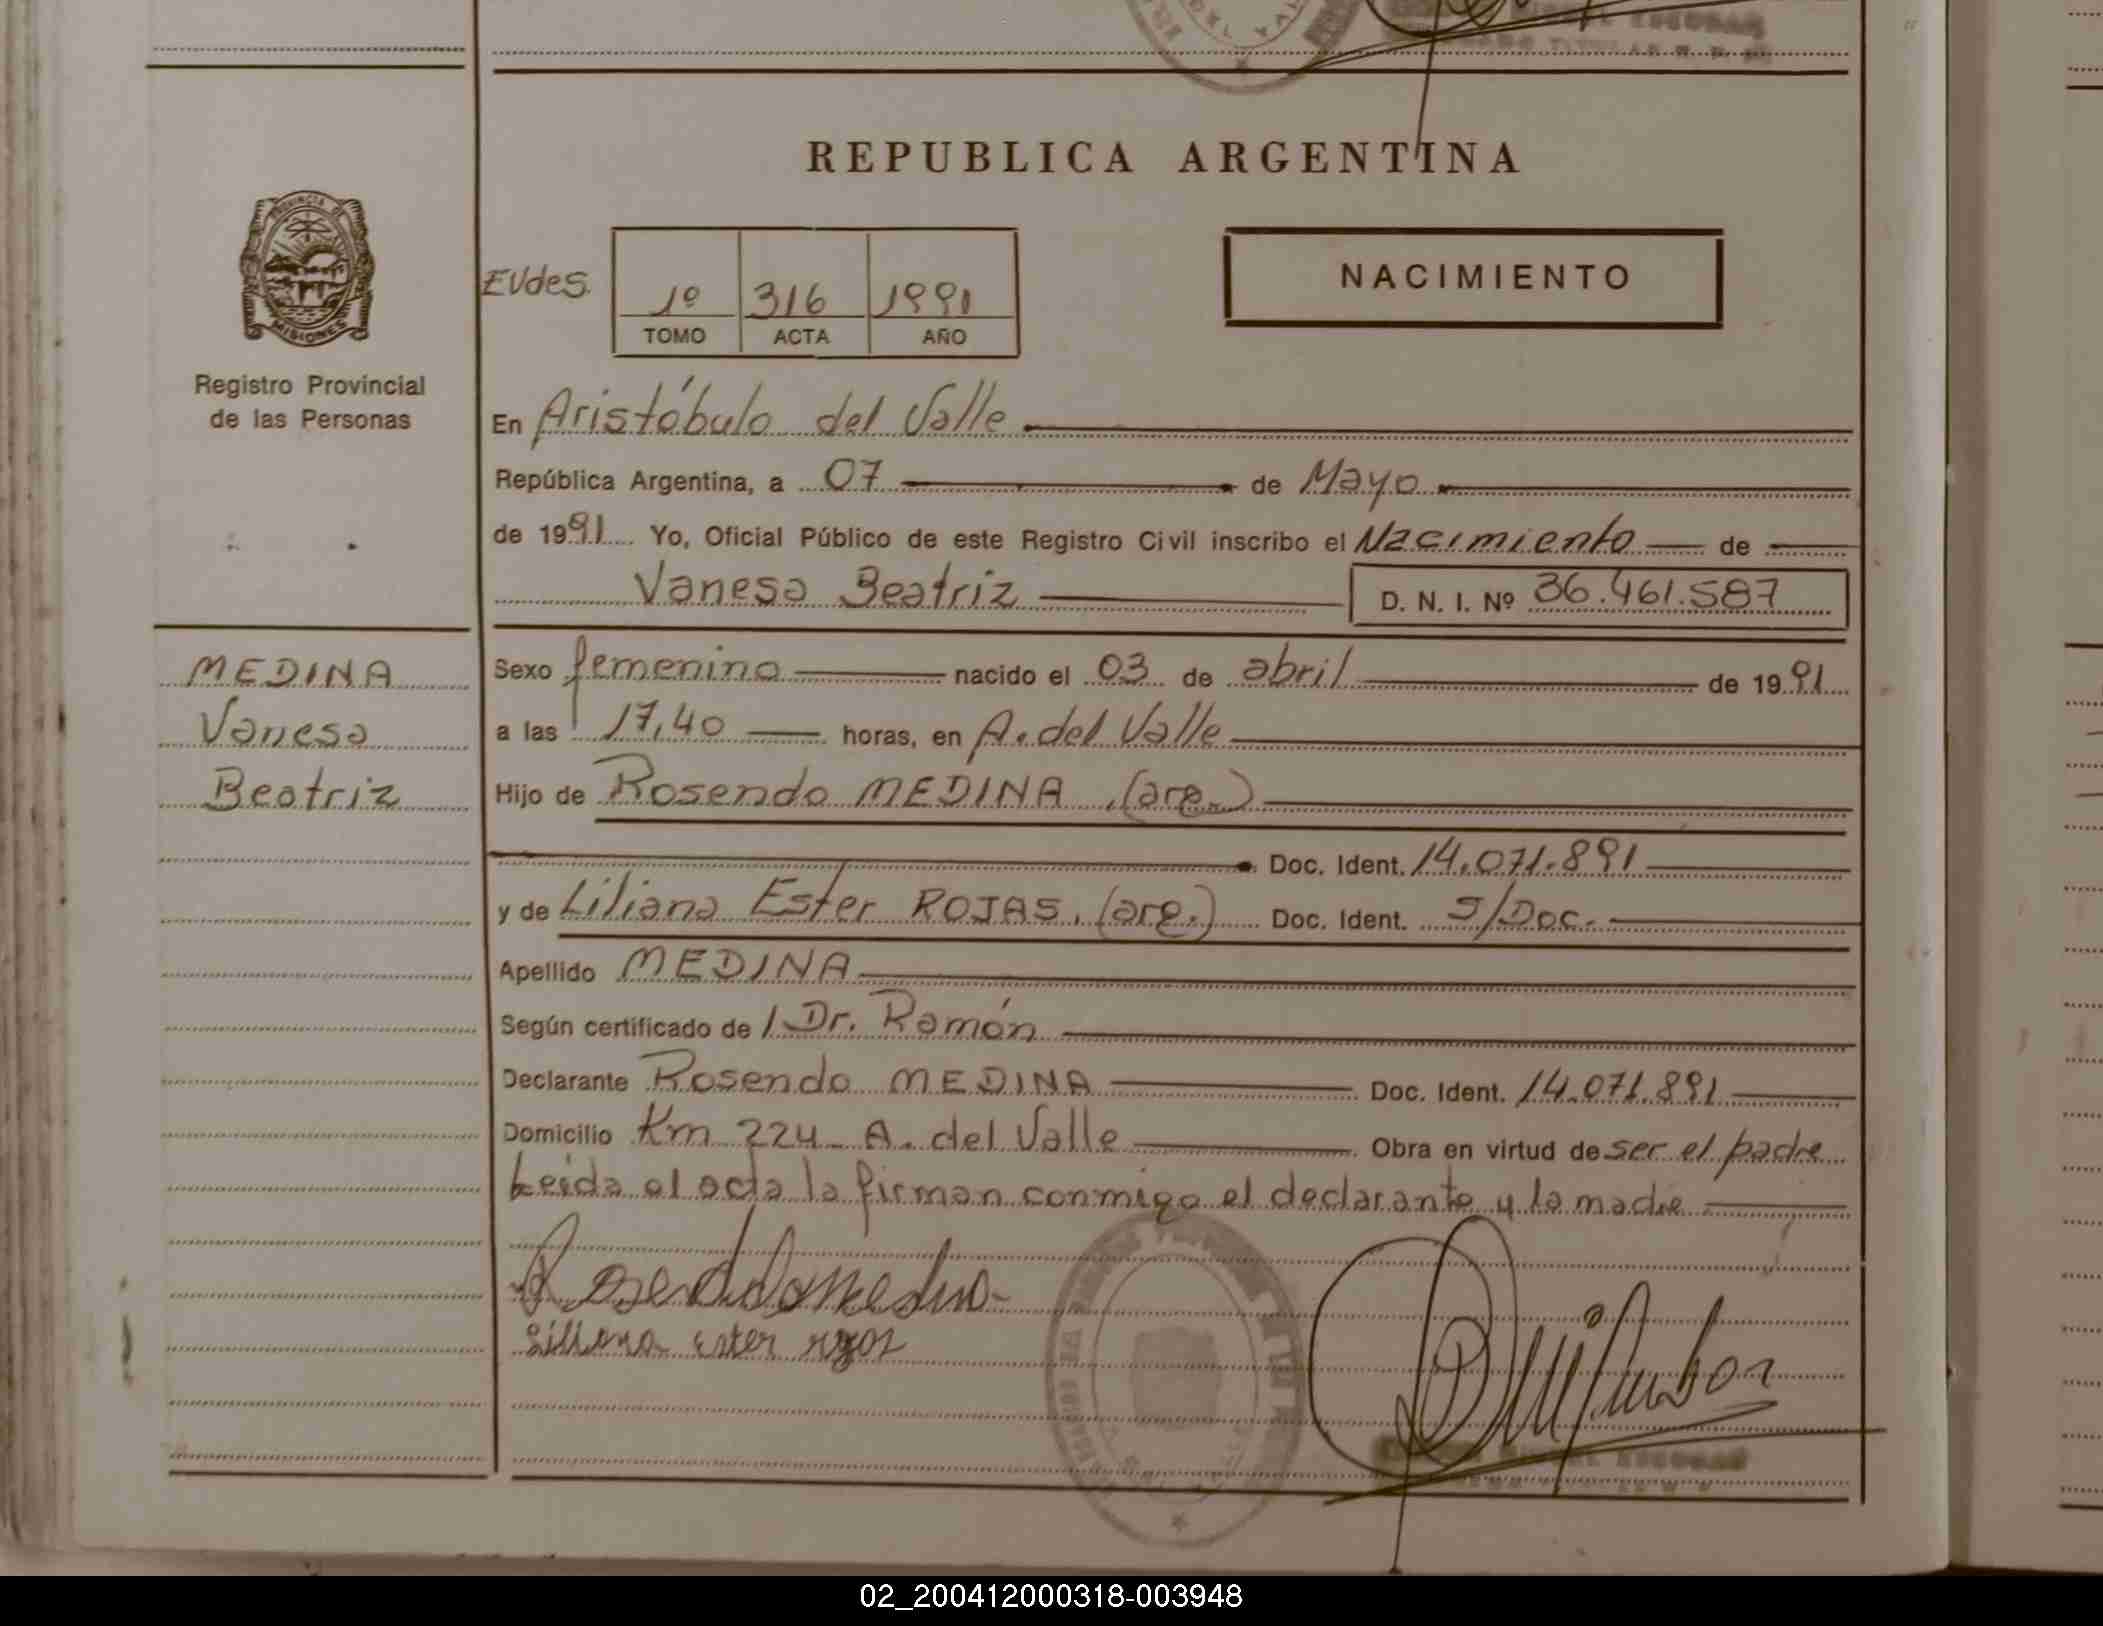 REPUBLICA ARGENTINA
PROVINCIA DE
MISIONES
Registro Provincial
de las Personas
EVdes.
1º 316 1991
TOMO ACTA AÑO
NACIMIENTO
En Aristóbulo del Valle
República Argentina, a 07 de Mayo
de 1991 Yo, Oficial Público de este Registro Civil inscribo el Nacimiento de
Vanesa Beatriz D. N. I. Nº 36.461.587
MEDINA
Vanesa
Beatriz
Sexo femenino nacido el 03 de abril de 1991
a las 17,40 horas, en A. del Valle
Hijo de Rosendo MEDINA, (arg.)
Doc. Ident. 14.071.891
y de Liliana Ester ROJAS, (arg.) Doc. Ident. S/Doc.
Apellido MEDINA
Según certificado de Dr. Ramón
Declarante Rosendo MEDINA Doc. Ident. 14.071.891
Domicilio Km 224 - A. del Valle Obra en virtud de ser el padre
Leida el acta la firman conmigo el declarante y la madre
Rosendo Medina
Liliana Ester rojas
02_200412000318-003948